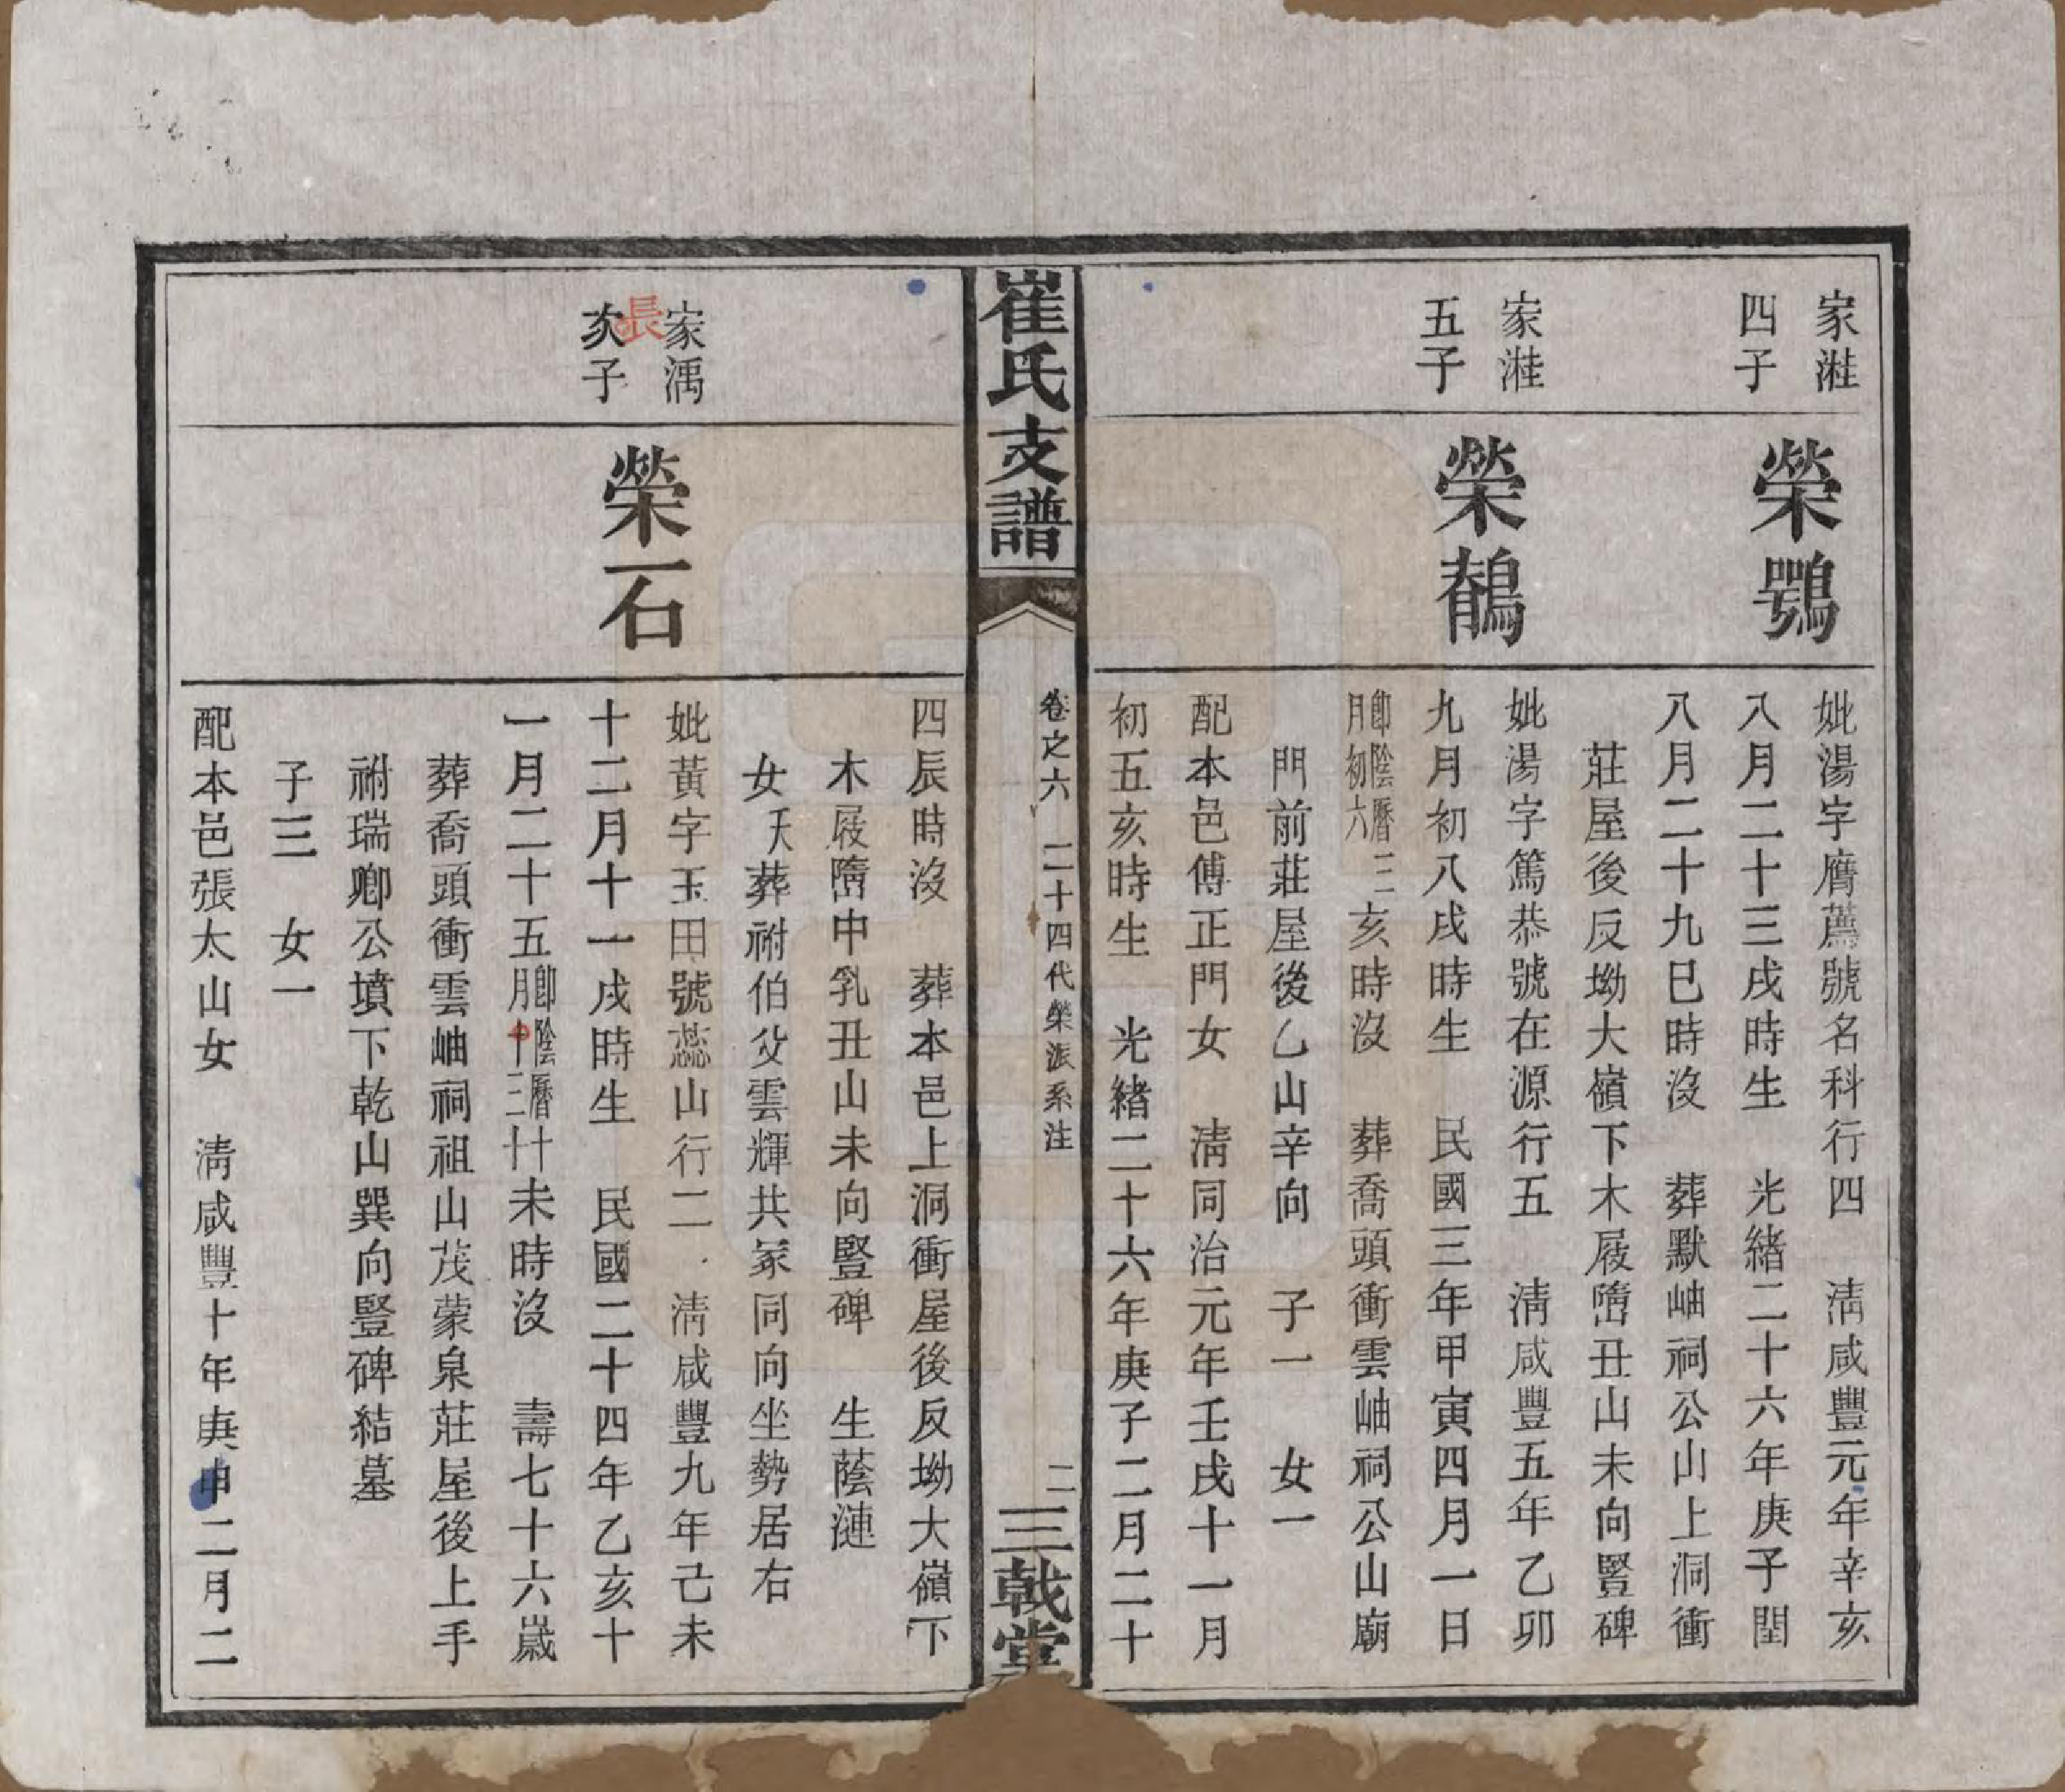 家溎
四子
榮鶚
妣湯字膺薦號名科行四　清咸豐元年辛亥
八月二十三戌時生　光緒二十六年庚子閏
八月二十九巳時沒　葬默岫祠公山上洞衝
莊屋後反坳大嶺下木屐𡺾丑山未向豎碑
家溎
五子
榮鶄
妣湯字篤恭號在源行五　清咸豐五年乙卯
九月初八戌時生　民國三年甲寅四月一日
即陰曆三
月初六
亥時沒　葬喬頭衝雲岫祠公山廟
門前莊屋後乙山辛向　子一　女一
配本邑傅正門女　清同治元年壬戌十一月
初五亥時生　光緒二十六年庚子二月二十
崔氏支譜
卷之六　二十四代榮派系注
二
三戟堂
四辰時沒　葬本邑上洞衝屋後反坳大嶺下
木屐𡺾中乳丑山未向豎碑　生蔭漣
女夭葬祔伯父雲輝共冢同向坐勢居右
家澫
次子
長
榮石
妣黃字玉田號蕊山行二　清咸豐九年己未
十二月十一戌時生　民國二十四年乙亥十
一月二十五
即陰曆十
月十三
未時沒　壽七十六歲
葬喬頭衝雲岫祠祖山茂蒙泉莊屋後上手
祔瑞卿公墳下乾山巽向豎碑結墓
子三　女一
配本邑張太山女　清咸豐十年庚申二月二